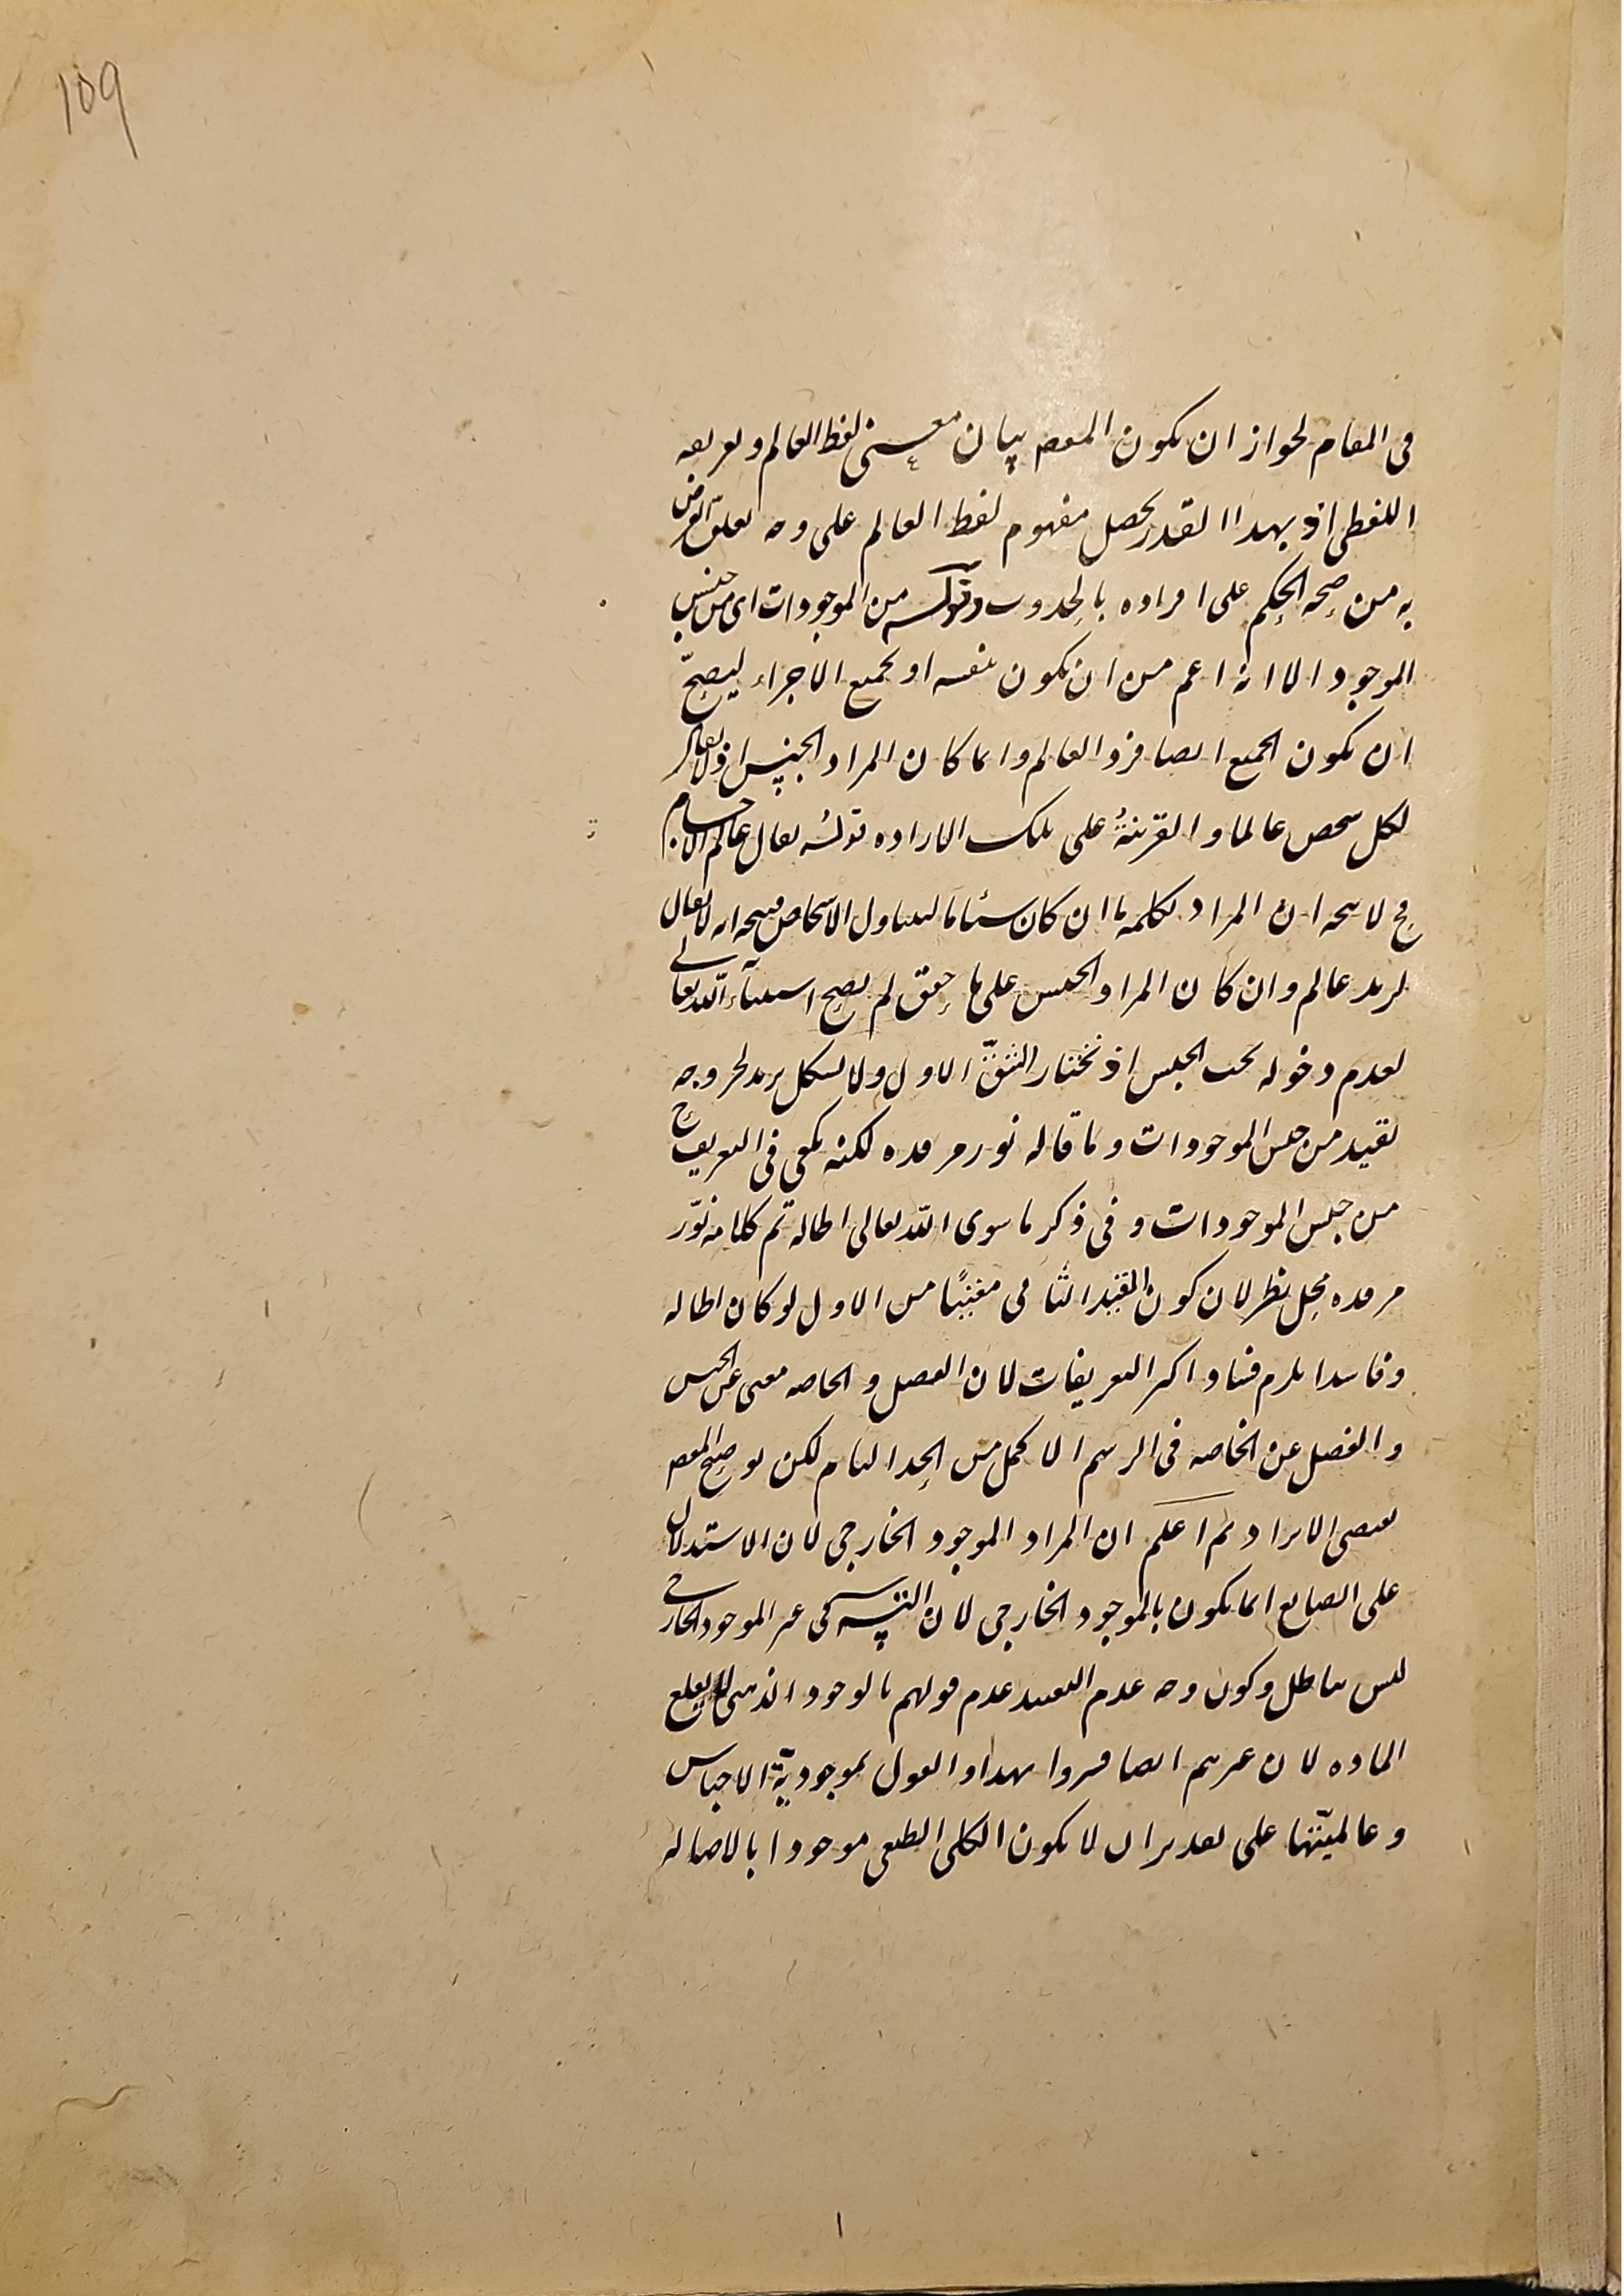 109
فى المقام لجواز ان يكون المقصم بيان معنى لفظ العالم و تعريفه
اللفظى اذ بهذا القدر يحصل مفهوم لفظ العالم على وجه تعلق الغرض
به من صحه الحكم على افراده بالحدوث وقوله من الموجودات اى من جنس
الموجود الا انه اعم من ان يكون بنفسه او بجميع الاجزاء ليصحّ
ان يكون الجميع ايضا فرد العالم و انما كان المراد الجنس اذ لا يقال
لكل شخص عالما و القرينةُ على تلك الاراده قولُه يقال عالم الاجسام
فح لا يتجه ان المراد بكلمه ما ان كان شيئا ما ليتناول الاشخاص فيتجه انه لا يقال
لزيد عالم و ان كان المراد الجنس على ما حقق لم يصح استثناء اللّه تعالى
لعدم دخوله تحت الجنس اذ نختار الشقّ الاول ولا يشكل بزيد لخروجه
بقيد من جنس الموجودات و ما قاله نور مرقده لكنه يكفى فى التعريف ح
من جنس الموجودات و فى ذكر ما سوى اللّه تعالى اطاله تم كلامه نوّر
مرقده محل نظر لان كون القيد الثانى مغنيًا من الاول لو كان اطاله
و فاسدا يلزم فساد اكثر التعريفات لان الفصل و الخاصه مغنى عن الجنس
و الفصل عن الخاصه فى الرسم الاكمل من الحد التام لكن توضيح المقصم
يقتضى الايراد ثم اعلم ان المراد الموجود الخارجى لان الاستدلال
على الصانع انما يكون بالموجود الخارجى لان غير الموجود الخارجى
ليس بباطل و كون وجه عدم التقييد عدم قولهم بالوجود الذهنى لا يقلع
الماده لان غيرهم ايضا فسروا بهذا و القول بموجوديّة الاجناس
و عالميّتها على تقدير ان لا يكون الكلى الطبعى موجودا بالاصاله